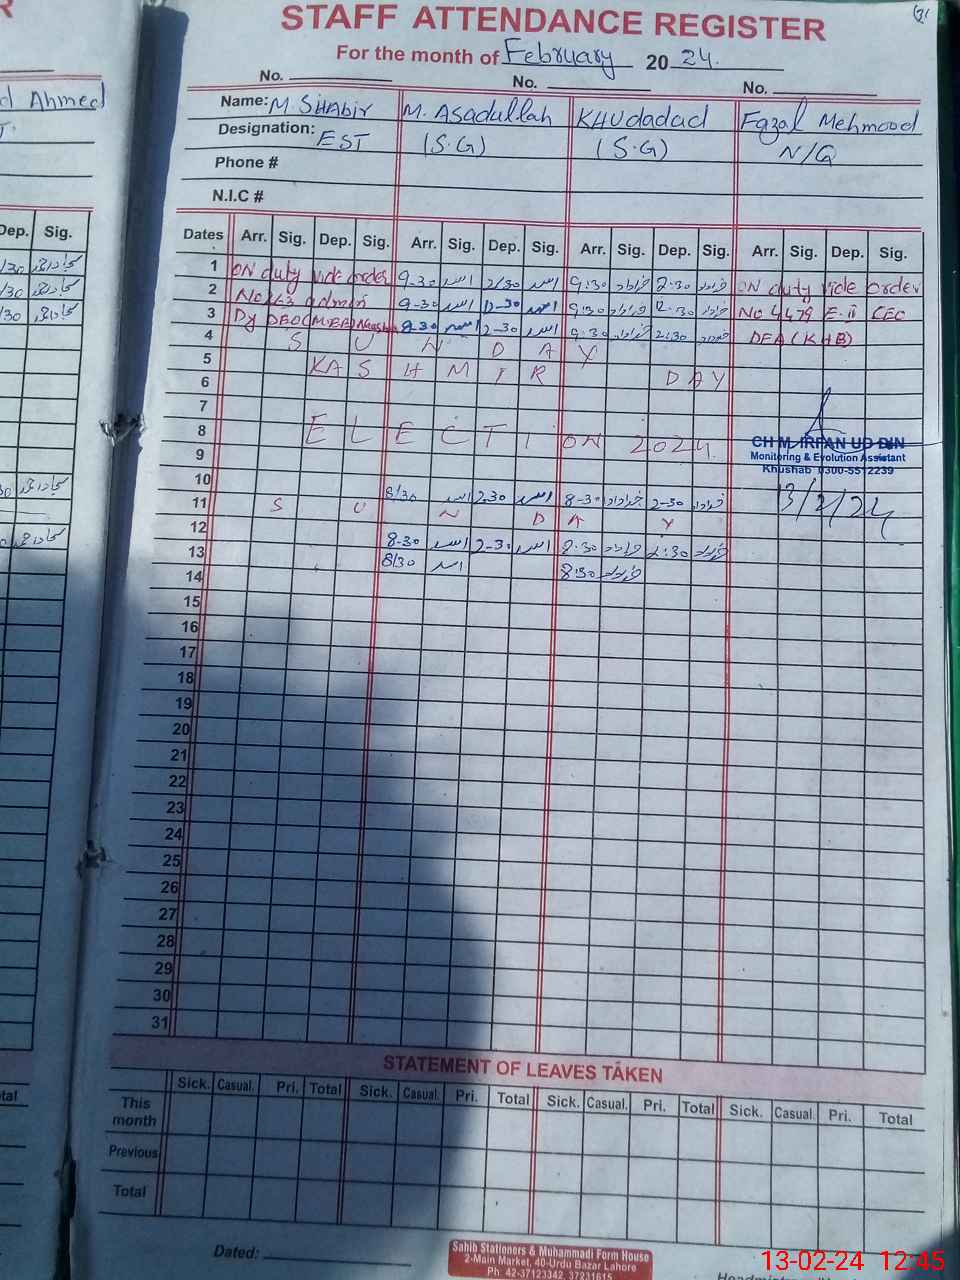 STAFF ATTENDANCE REGISTER
For the month of February 2024.
No. No. No.
d Ahmed
Name: M. SHabir M. Asadullah KHUdadad Fazal Mehmood
Designation: EST (S.G) (S.G) N/Q
Phone #
N.I.C #
Dep. Sig.
Dates Arr. Sig. Dep. Sig. Arr. Sig. Dep. Sig. Arr. Sig. Dep. Sig. Arr. Sig. Dep. Sig.
1 ON duty vide order 9-30 اسد 2/30 اسد 9:30 2:30 ON duty vide order
2 No admin 9-30 اسد 12-30 اسد 9:30 12:30 No 4479 E.ii CEO
3 Dy DEO(M-EE) 9-30 اسد 2-30 اسد 9:30 2:30 DEA (KHB)
4 S U N D A Y
5 KASHMIR DAY
6
7
8 ELECTION 2024.
9
CH M. IRFAN UD DIN
Monitoring & Evolution Assistant
Khushab 0300-5512239
13/2/24
10
8/30 اسد 2-30 اسد 8-30 2-30
11 S U N D A Y
12
8-30 اسد 2-30 اسد 8:30 2:30
13
8/30 اسد 8:30
14
15
16
17
18
19
20
21
22
23
24
25
26
27
28
29
30
31
STATEMENT OF LEAVES TAKEN
Sick. Casual. Pri. Total Sick. Casual. Pri. Total Sick. Casual. Pri. Total Sick. Casual. Pri. Total
This month
Previous
Total
Dated:
Sahib Stationers & Muhammadi Form House
2-Main Market, 40-Urdu Bazar Lahore
Ph 42-37123342, 37231615
13-02-24 12:45